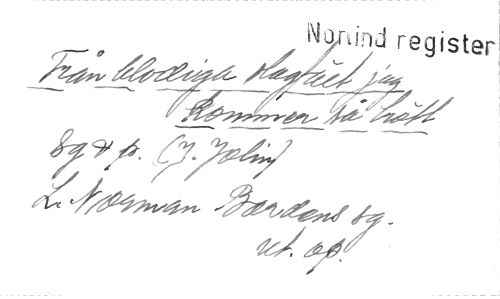 Nortind register
Från blodiga slagfält jag
kommer så trött
sg & p. (J. Jolin)
L. Norman Bardens sg.
ut. op.